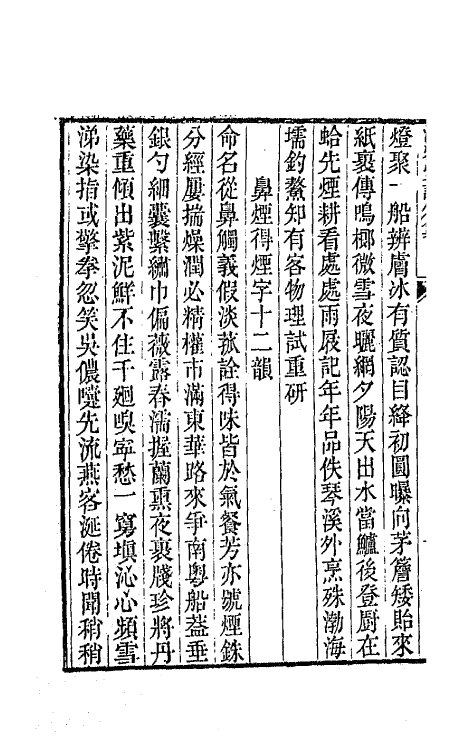 燈聚一船辨膚冰有質認目絳初圓曝向茅簷矮貽來
紙裹傳鳴榔微雪夜曬網夕陽天出水當鱸後登厨在
蛤先煙耕看處處雨展記年年品佚琴溪外烹殊渤海
壖釣鰲知有客物理試重研
鼻煙得煙字十二韻
命名從鼻觸義假淡菰詮得味皆於氣餐芳亦號煙銖
分經屢揣燥潤必精權市滿東華路來爭南粵船葢垂
銀勺細囊繫繡巾偏薇露春濡握蘭熏夜裹牋珍將丹
藥重傾出紫泥鮮不住千迴嗅寧愁一竅塡沁心頻雪
涕染指或擎拳忽笑吳儂嚏先流燕客涎倦時聞稍稍